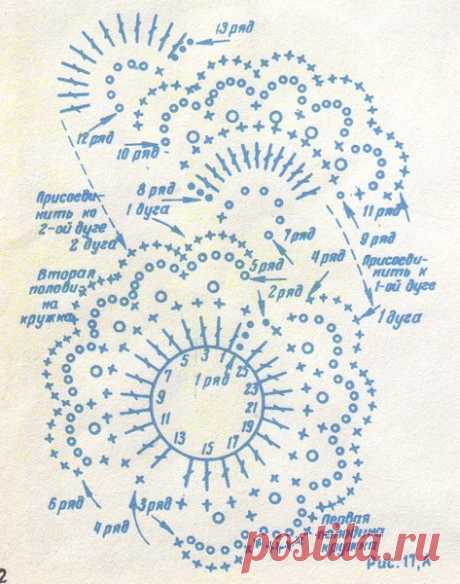 13 ряд
12 ряд
10 ряд
8 ряд
Присоеди-
нить ко
2-ой дуге
2 дуга
1 дуга
11 ряд
7 ряд
9 ряд
Присоеди-
нить к
1-ой дуге
1 дуга
5 ряд
4 ряд
2 ряд
Вторая
полови-
на
кружка
1 ряд
1
3
5
7
9
11
13
15
17
19
21
23
25
6 ряд
4 ряд
3 ряд
Первая
половина
кружка
Рис. 17, А
2
postila.ru